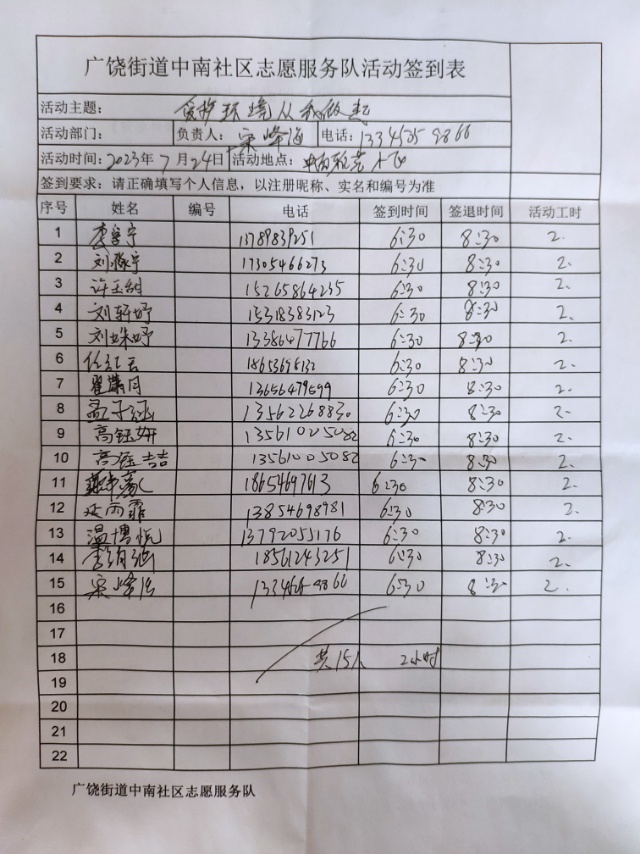 广饶街道中南社区志愿服务队活动签到表
活动主题: 爱护环境从我做起
活动部门: 负责人: 宋峰海 电话:
活动时间: 2023年7月24日 活动地点:
签到要求：请正确填写个人信息，以注册昵称、实名和编号为准
序号 姓名 编号 电话 签到时间 签退时间 活动工时
1 13789839251 6:30 8:30 2.
2 17305466273 6:30 8:30 2.
3 许玉朗 15265864235 6:30 8:30 2.
4 刘轩妤 15318383123 6:30 8:30 2.
5 刘姝妤 13386477766 6:30 8:30 2.
6 任红云 18653698132 6:30 8:30 2.
7 13656479599 6:30 8:30 2.
8 孟子涵 13562268830 6:30 8:30 2.
9 高钰妍 13561005082 6:30 8:30 2.
10 13561005082 6:30 8:30 2.
11 6:30 8:30 2.
12 13854698981 6:30 8:30 2.
13 温博悦 13792055176 6:30 8:30 2.
14 18561243251 6:30 8:30 2.
15 宋峰海 6:30 8:30 2.
16
17
18 共15人 2小时
19
20
21
22
广饶街道中南社区志愿服务队